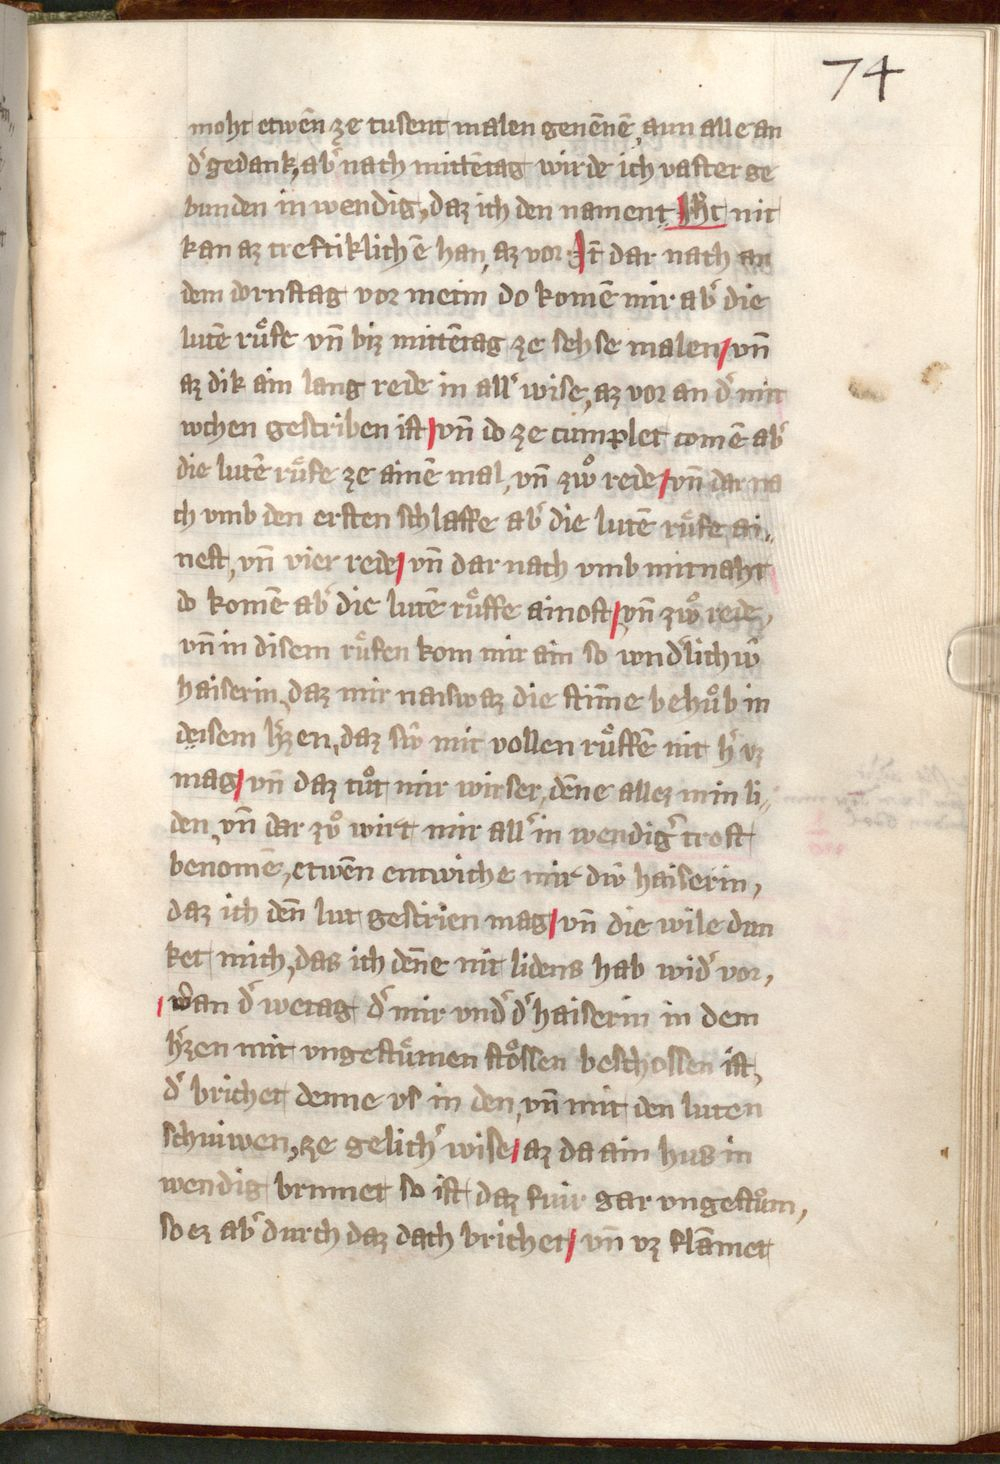 74
moht etwēn ze tusent malen genēnē, aun alle an
dˀ gedank, abˀ nach mittētag wirde ich vaster ge
bunden in wendig, daz ich den nament Iħc nit
kan az creftiklichē han, az vor. It̄ dar nach an
dem dornstag vor metin do komē mir abˀ die
lutē růfe vn̄ biz mittētag ze sehse malen / vn̄
az dik ain lang rede in allˀ wise, az vor an dˀ mit
wchen gescriben ist / vn̄ do ze cumplet comē abˀ
die lutē růfe ze ainē mal, vn̄ zwo rede / vn̄ dar na
ch vmb den ersten schlaffe abˀ die lutē růfe ai„
nest, vn̄ vier rede / vn̄ dar nach vmb mitnaht
do komē abˀ die lutē růffe ainost / vn̄ zwo rede,
vn̄ in disem růfen kom mir ain so wndˀlich
haiserin, daz mir naiswaz die stīme behůb in
deisem hˀzen, daz siv mit vollen růffē nit hˀ vz
mag / vn̄ daz tůt mir wirser, dēne allez min li„
den, vn̄ dar zů wirt mir allˀ in wendigˀ trost
benomē, etwēn entwiche mir div haiserin,
daz ich dēn lut gescrien mag / vn̄ die wile dun
ket mich, das ich dēne nit lidens hab widˀ vor,
/ wan dˀ wetag dˀ mir vndˀ dˀ haiserin in dem
hˀzen mit vngestůmen stôssen beschossen ist,
dˀ brichet denne vs in den, vn̄ mit den luten
schriwen, ze gelichˀ wise / az da ain hus in
wendig brinnet so ist daz fuir gar vngestům,
so ez abˀ durch daz dach brichet / vn̄ vz flāmet